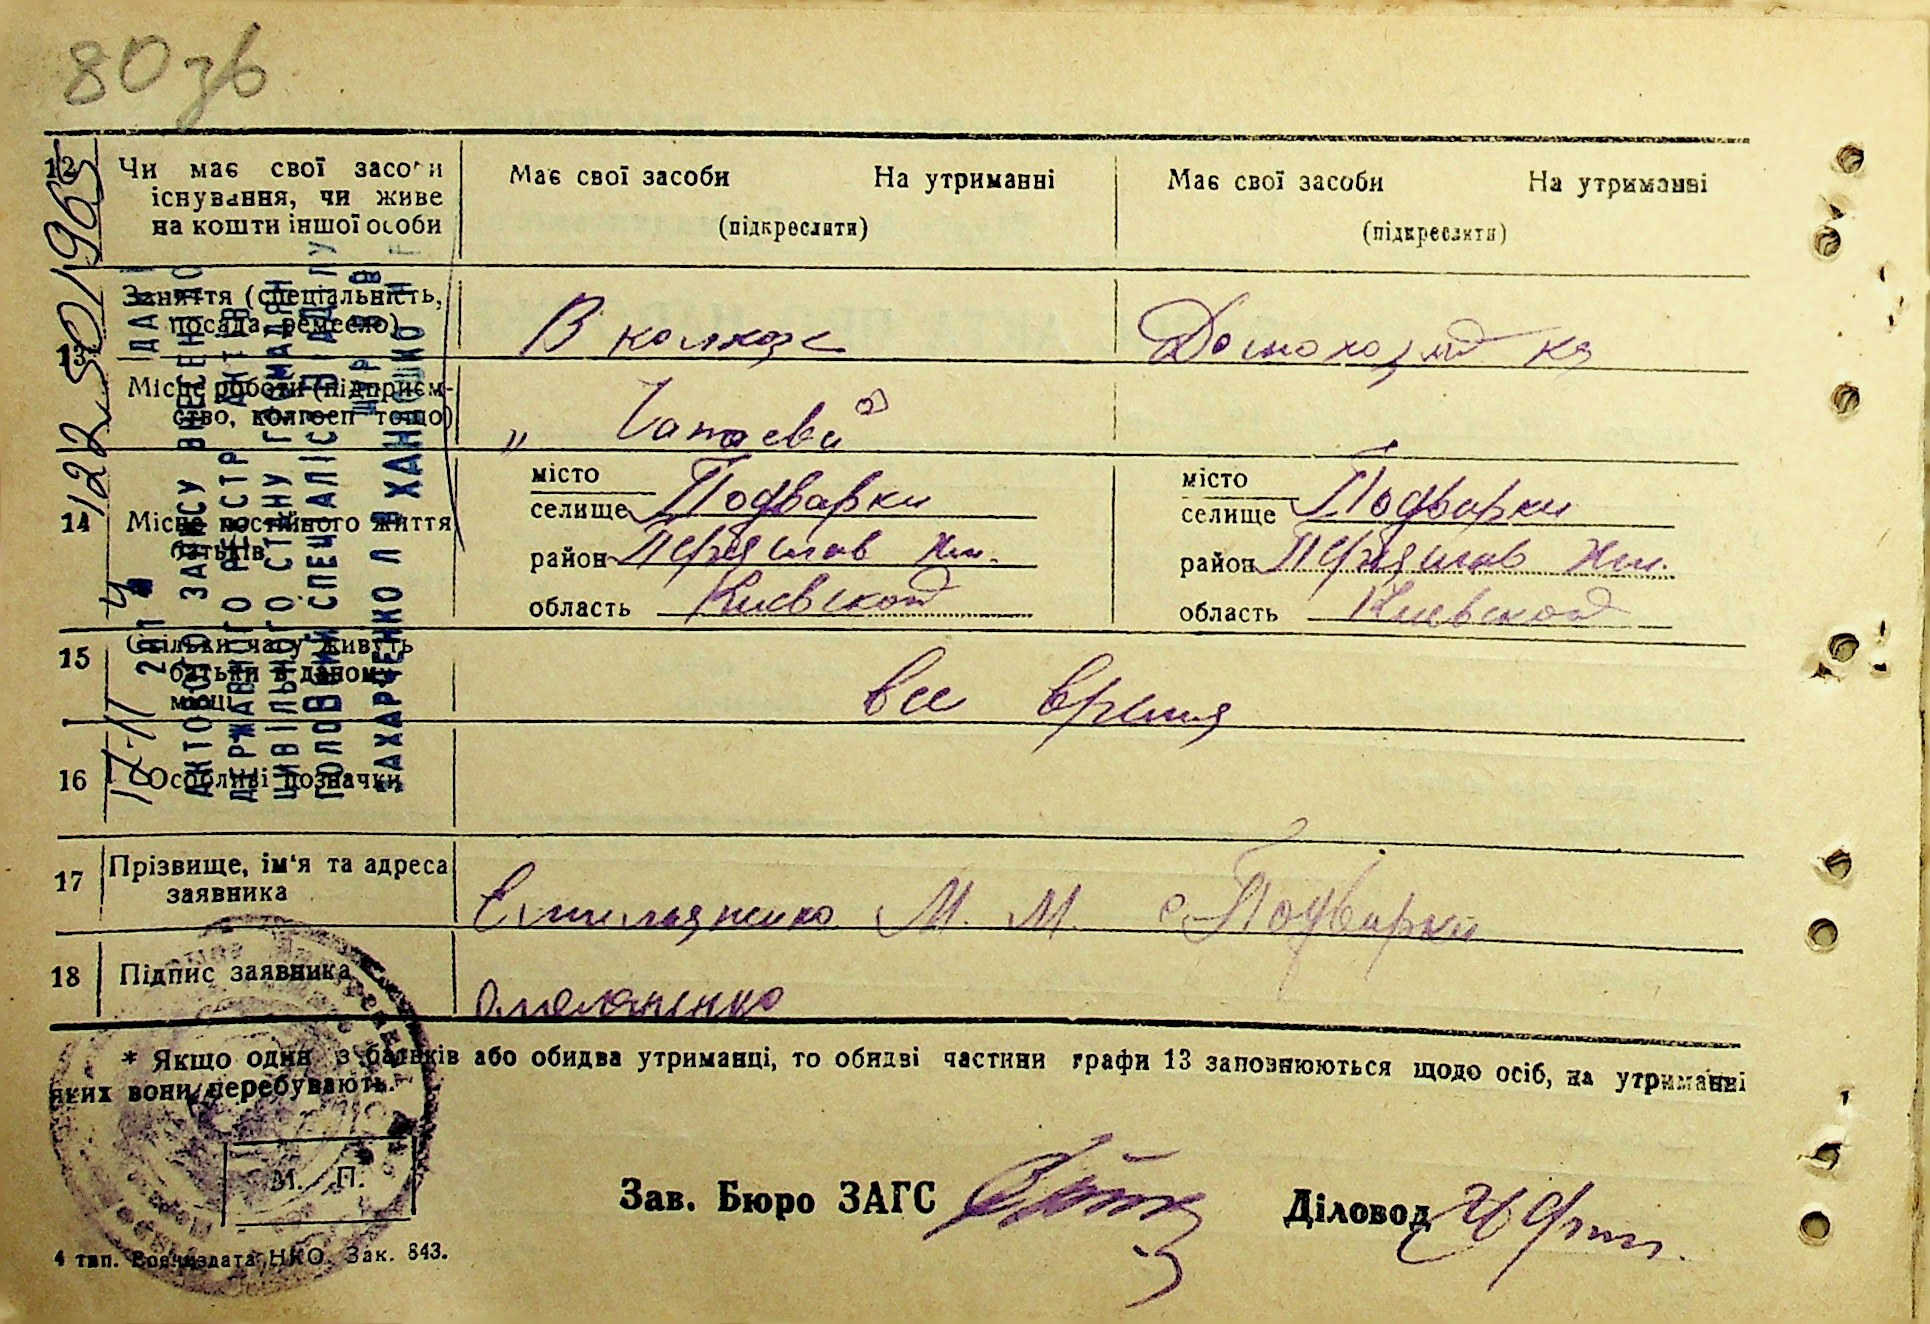 80 зв
12 Чи має свої засоби Має свої засоби На утриманні Має свої засоби На утриманні
існування, чи живе
на кошти іншої особи (підкреслити) (підкреслити)
13 Заняття (спеціальність,
посада, ремесло) В колхозе Домохозяйка
Місце роботи (підприєм-
ство, колгосп тощо) „ Чапаева
14 Місце постійного життя
батьків
місто місто
селище Подварки селище Подварки
район Переяслав Хм. район Переяслав Хм.
область Киевской область Киевской
15 Скільки часу живуть
батьки в даному
місці все время
16 Особливі позначки
17 Прізвище, ім'я та адреса
заявника Емильяненко М. М. с. Подварки
18 Підпис заявника Омеляненко
* Якщо один з батьків або обидва утриманці, то обидві частини графи 13 заповнюються щодо осіб, на утриманні
яких вони перебувають.
М. П.
Зав. Бюро ЗАГС Діловод
4 тип. Воениздата НКО. Зак. 843.
ДАНІ
АКТОВОГО ЗАПИСУ ВНЕСЕНІ ДО
ДЕРЖАВНОГО РЕЄСТРУ АКТІВ
ЦИВІЛЬНОГО СТАНУ ГРОМАДЯН
ГОЛОВНИЙ СПЕЦІАЛІСТ ВІДДІЛУ
ЗАХАРЧЕНКО Л В